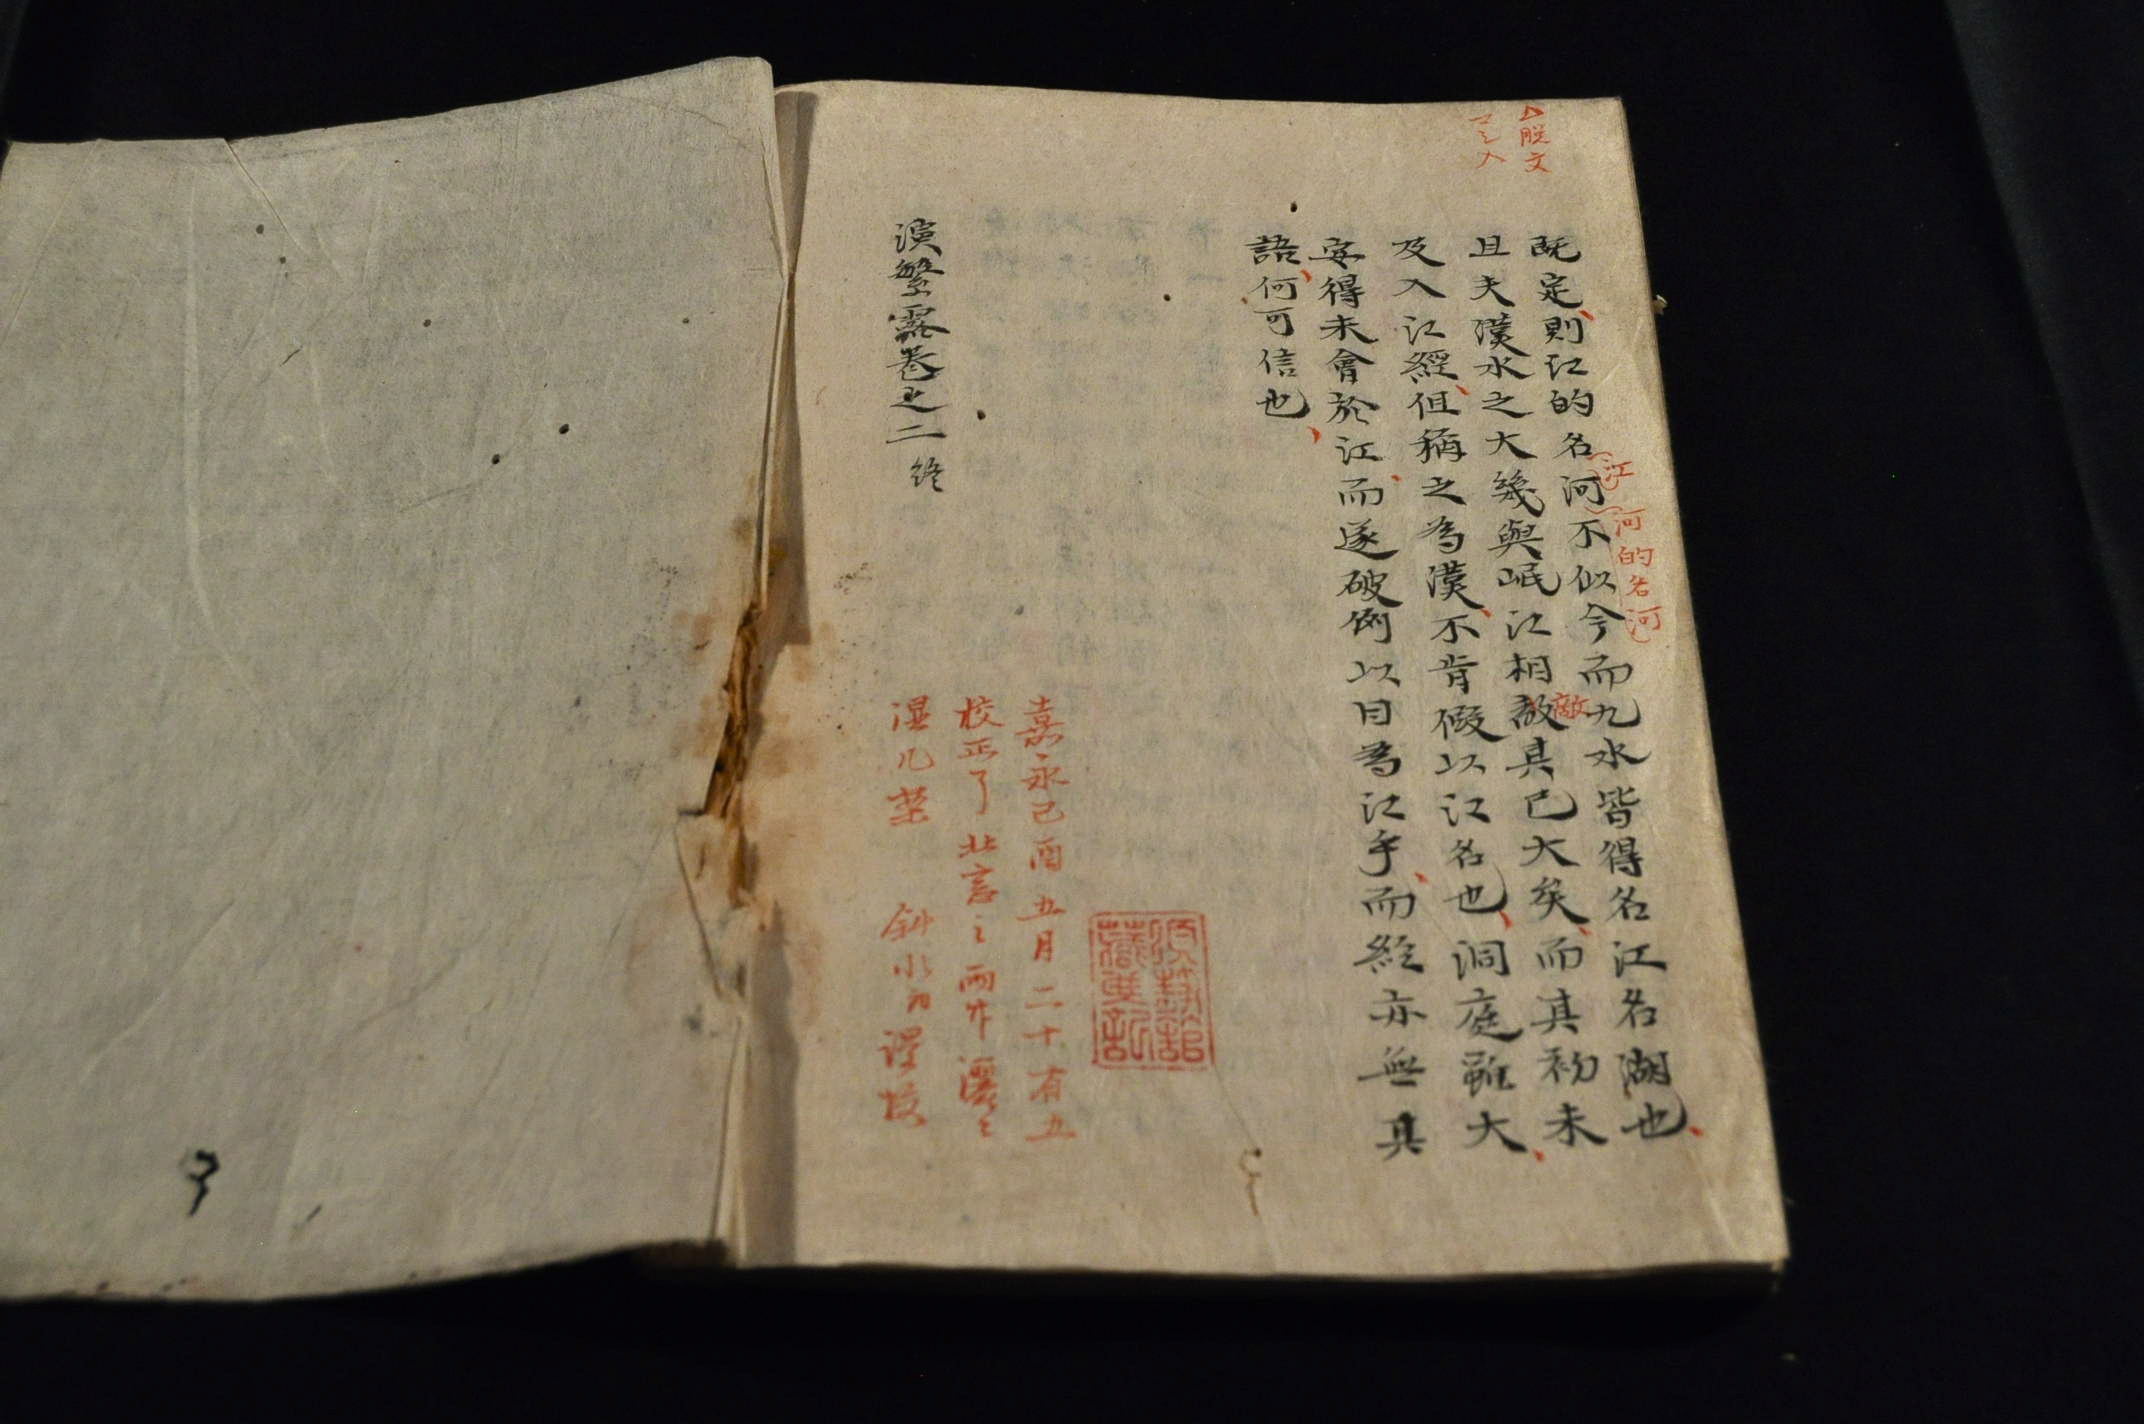 脱文
既定則江的名河不似今而九水皆得名江名湖也
江
河的名河
且夫漢水之大幾與岷江相敵其已大矣而其初未
敵
及入江經但稱之為漢不肯假以江名也洞庭雖大
安得未會於江而遂破例以目為江乎而經亦無其
語何可信也
嘉永己酉五月二十有五
校正了
演繁露卷之二終